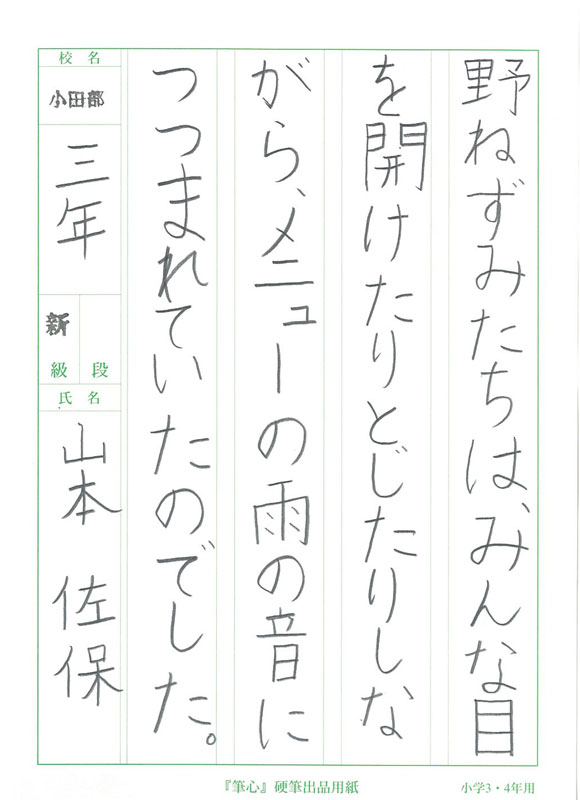 野ねずみたちは、みんな目
を開けたりとじたりしな
がら、メニューの雨の音に
つつまれていたのでした。
校名
小田部
三年
新
級 段
氏名
山本 佐保
『筆心』硬筆出品用紙
小学3・4年用